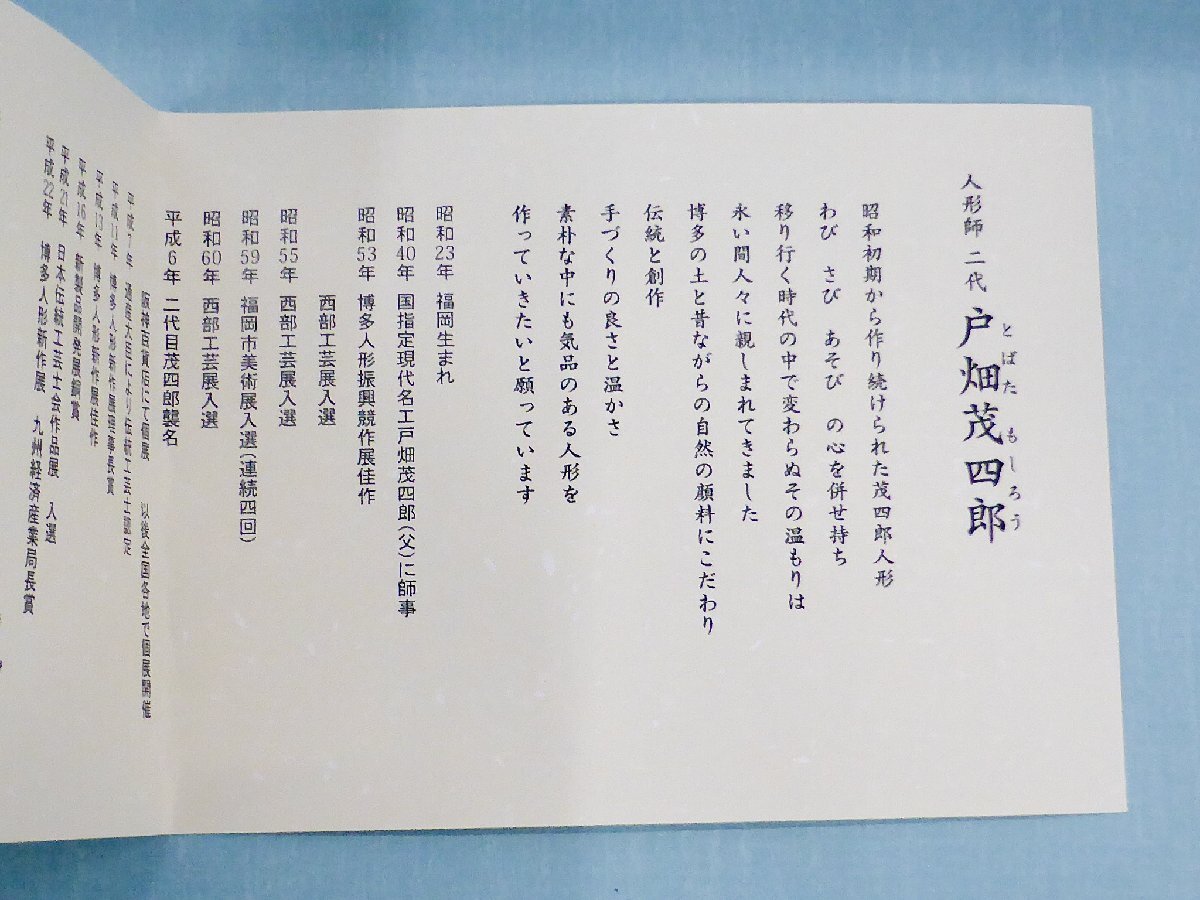 人形師 二代 戸畑茂四郎
とばた もしろう
昭和初期から作り続けられた茂四郎人形
わび さび あそび の心を併せ持ち
移り行く時代の中で変わらぬその温もりは
永い間人々に親しまれてきました
博多の土と昔ながらの自然の顔料にこだわり
伝統と創作
手づくりの良さと温かさ
素朴な中にも気品のある人形を
作っていきたいと願っています
昭和23年 福岡生まれ
昭和40年 国指定現代名工戸畑茂四郎(父)に師事
昭和53年 博多人形振興競作展佳作
西部工芸展入選
昭和55年 西部工芸展入選
昭和59年 福岡市美術展入選(連続四回)
昭和60年 西部工芸展入選
平成6年 二代目茂四郎襲名
阪神百貨店にて個展 以後全国各地で個展開催
平成7年 通産大臣により伝統工芸士認定
平成11年 博多人形新作展理事長賞
平成13年 博多人形新作展佳作
平成16年 新製品開発展銅賞
平成21年 日本伝統工芸士会作品展 入選
平成22年 博多人形新作展 九州経済産業局長賞